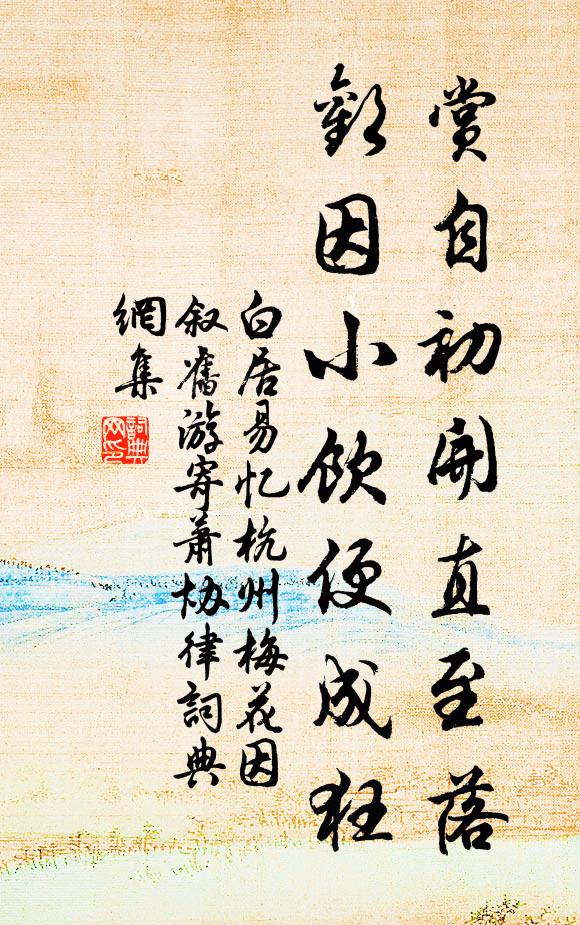 賞自初開直至落
歡因小飲便成狂
白居易忆杭州梅花因
叙舊游寄蕭协律詞典
網集
詞典
网印